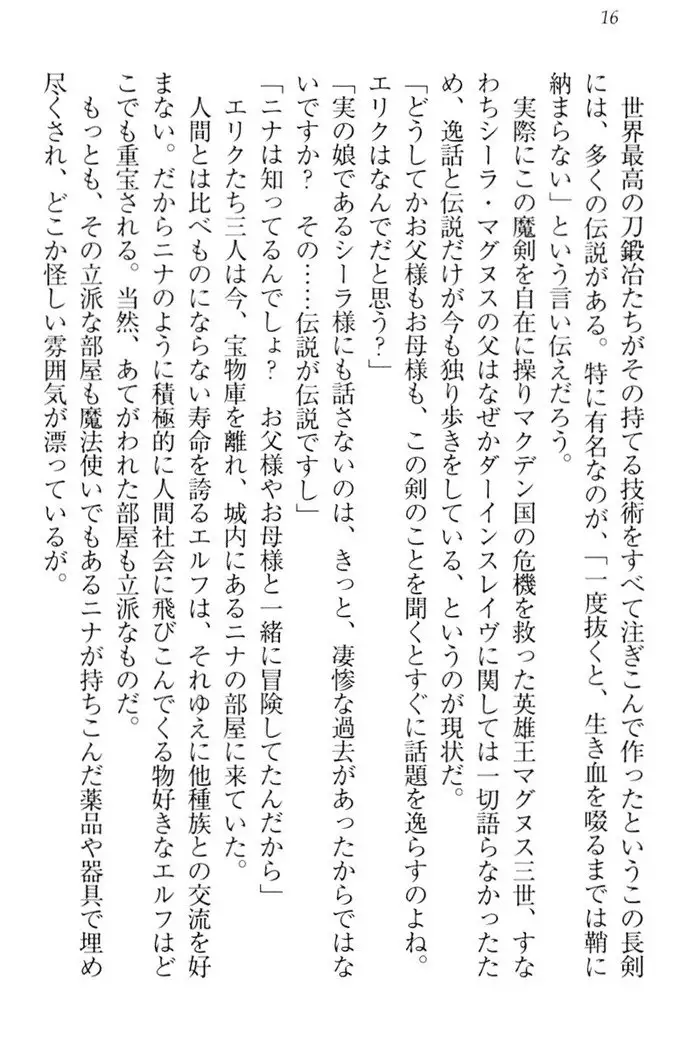 16
　世界最高の刀鍛冶たちがその持てる技術をすべて注ぎこんで作ったというこの長剣
には、多くの伝説がある。特に有名なのが、「一度抜くと、生き血を啜るまでは鞘に
納まらない」という言い伝えだろう。
　実際にこの魔剣を自在に操りマクデン国の危機を救った英雄王マグヌス三世、すな
わちシーラ・マグヌスの父はなぜかダーインスレイヴに関しては一切語らなかったた
め、逸話と伝説だけが今も独り歩きをしている、というのが現状だ。
「どうしてかお父様もお母様も、この剣のことを聞くとすぐに話題を逸らすのよね。
エリクはなんでだと思う？」
「実の娘であるシーラ様にも話さないのは、きっと、凄惨な過去があったからではな
いですか？　その……伝説が伝説ですし」
「ニナは知ってるんでしょ？　お父様やお母様と一緒に冒険してたんだから」
　エリクたち三人は今、宝物庫を離れ、城内にあるニナの部屋に来ていた。
　人間とは比べものにならない寿命を誇るエルフは、それゆえに他種族との交流を好
まない。だからニナのように積極的に人間社会に飛びこんでくる物好きなエルフはど
こでも重宝される。当然、あてがわれた部屋も立派なものだ。
　もっとも、その立派な部屋も魔法使いでもあるニナが持ちこんだ薬品や器具で埋め
尽くされ、どこか怪しい雰囲気が漂っているが。